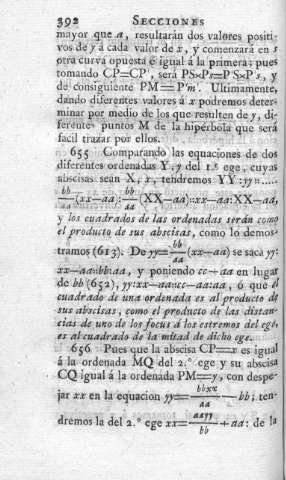 392 SECCIONES
mayor que a, resultarán dos valores positi-
vos de y á cada valor de x, y comenzará en s
otra curva opuesta é igual á la primera; pues
tomando CP=CP', será PS×Ps=P'S×P's, y
de consiguiente PM=P'm'. Ultimamente,
dando diferentes valores á x podremos deter-
minar por medio de los que resulten de y, di-
ferentes puntos M de la hipérbola que será
facil trazar por ellos.
655 Comparando las equaciones de dos
diferentes ordenadas Y, y del 1.º ege, cuyas
abscisas sean X, x, tendremos YY:yy::.....
bb/aa (xx—aa):bb/aa (XX—aa)::xx—aa:XX—aa,
y los cuadrados de las ordenadas serán como
el producto de sus abscisas, como lo demos-
tramos (613). De yy=bb/aa (xx—aa) se saca yy:
xx—aa::bb:aa, y poniendo cc+aa en lugar
de bb (652), yy:xx—aa:cc—aa:aa, ó que el
cuadrado de una ordenada es al producto de
sus abscisas, como el producto de las distan-
cias de uno de los focus á los estremos del ege,
es al cuadrado de la mitad de dicho ege.
656 Pues que la abscisa CP=x es igual
á la ordenada MQ del 2.º ege y su abscisa
CQ igual á la ordenada PM=y, con despe-
jar xx en la equacion yy=bbxx/aa—bb; ten-
dremos la del 2.º ege xx=aayy/bb+aa: de la